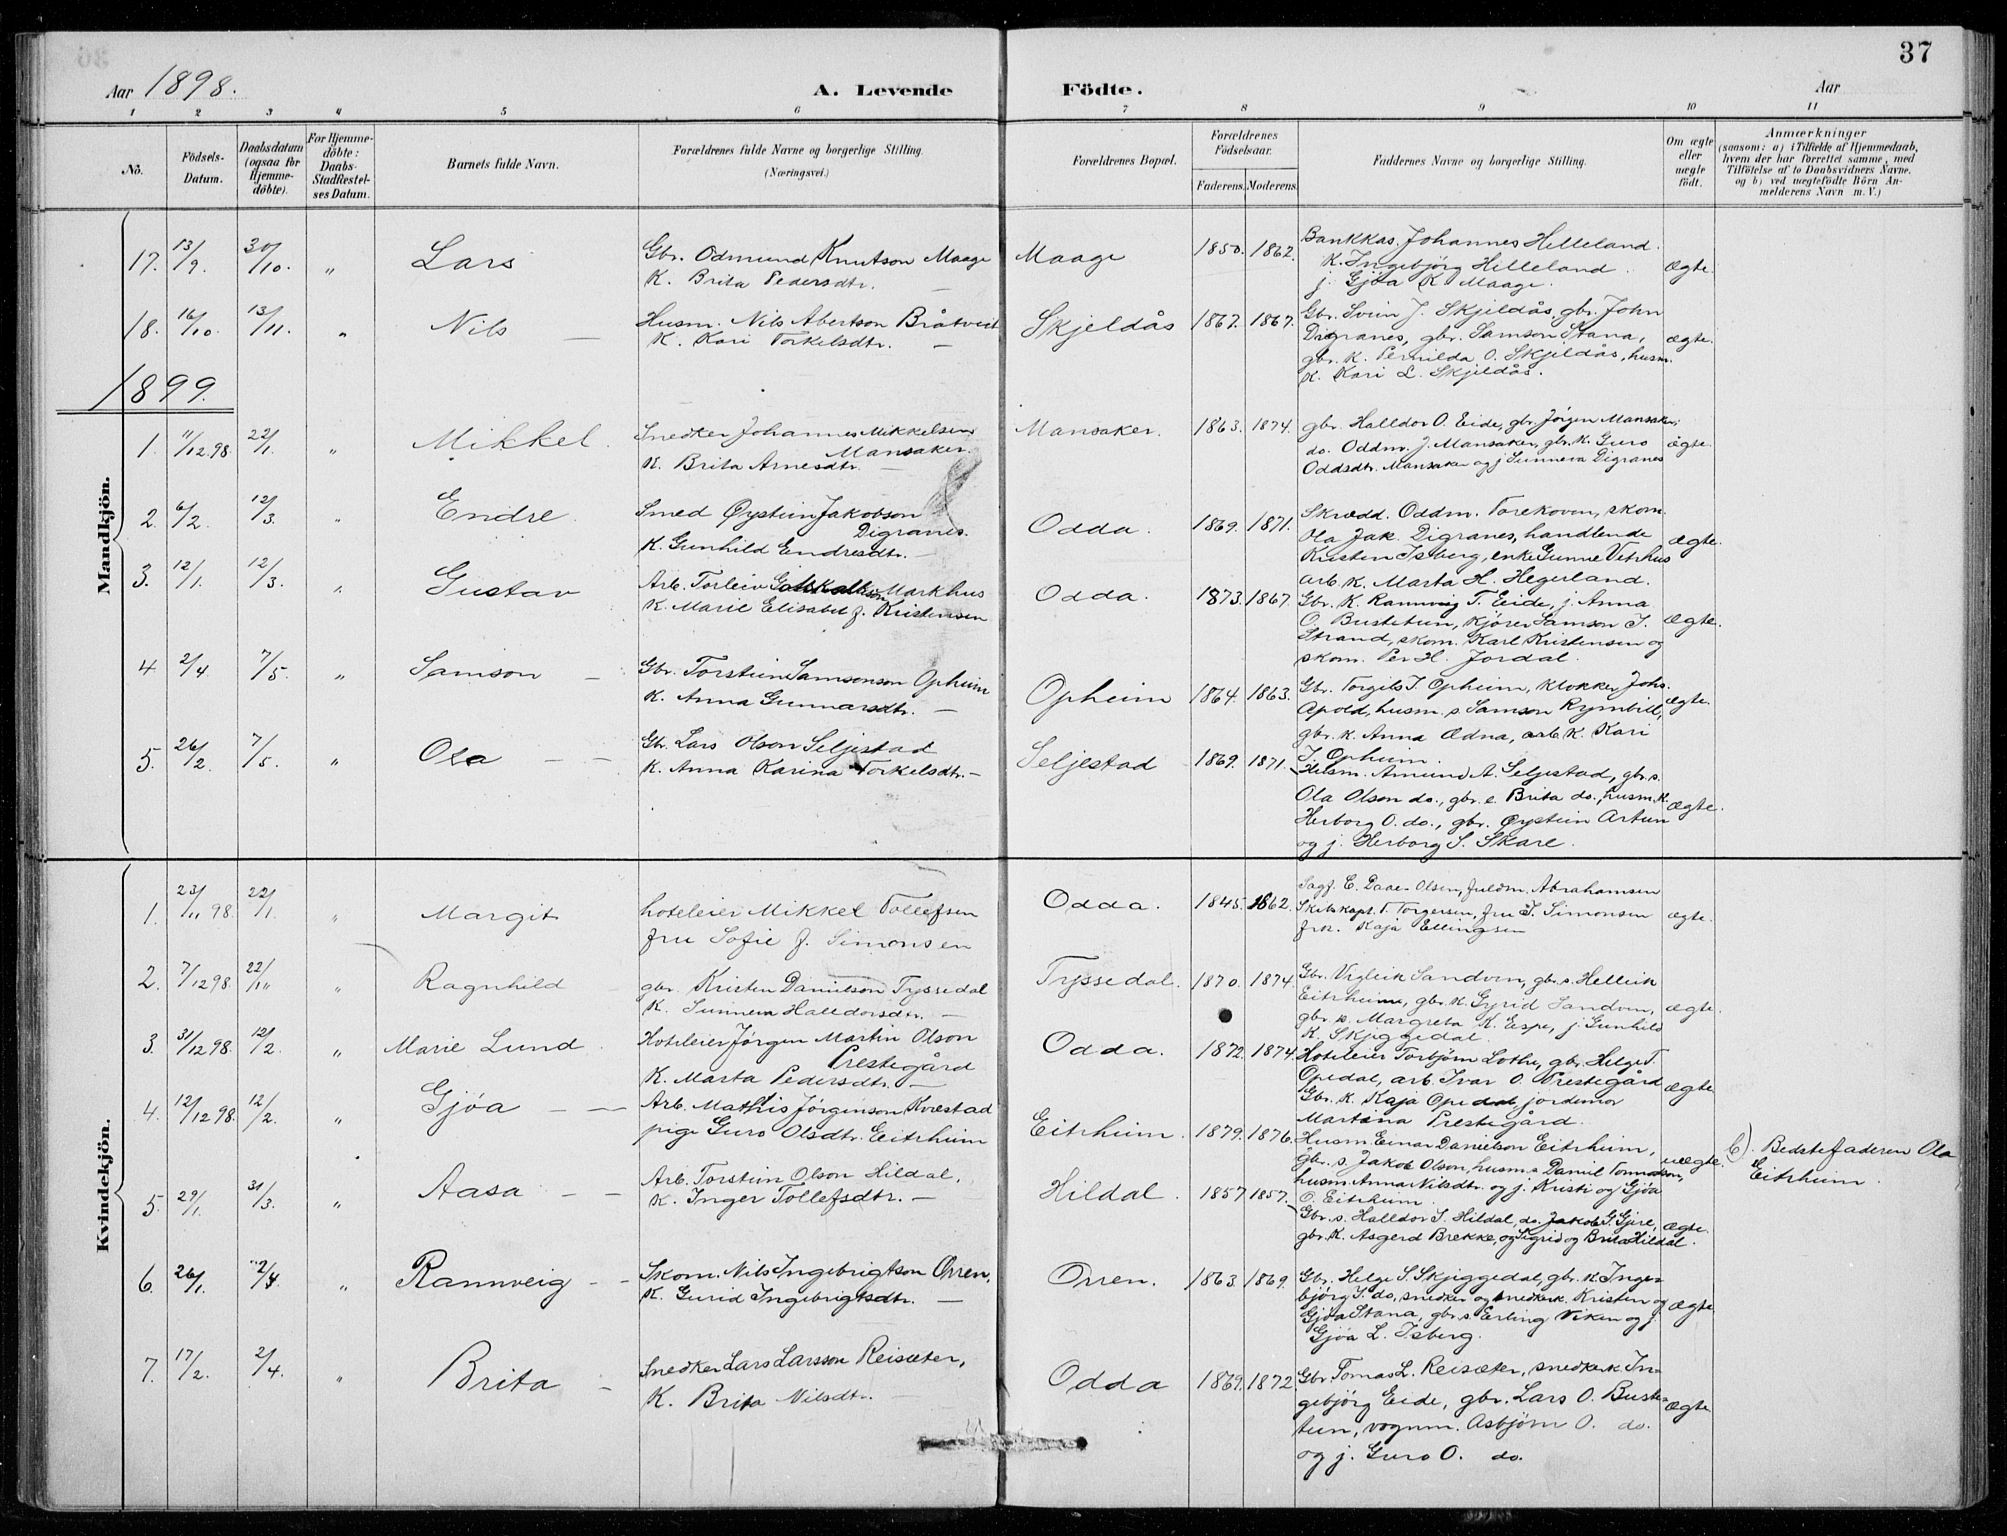 37
Aar 1898. A. Levende Födte. Aar
1 2 3 4 5 6 7 8 9 10 11
No. Födsels-Datum. Daabsdatum (ogsaa for Hjemme-döbte). For Hjemme-döbte: Daabs-StadRestel-ses Datum. Barnets fulde Navn. Forældrenes fulde Navne og borgerlige Stilling. (Næringsvei.) Forældrenes Bopæl. Forældrenes Födselsaar. Faderens. Moderens. Faddernes Navne og borgerlige Stilling. Om ægte eller uægte födt. Anmærkninger (saasom: a) i Tilfælde af Hjemmedaab, hvem der har forrettet samme, med Tilföielse af to Daabsvidners Navne. og b) ved uægtefödte Börn An-melderens Navn m. V.)
Mandkjön.
17. 13/9. 30/10. " Lars Gbr. Odmund Knutson Maage Maage 1850. 1862. Bankkas. Johannes Helleland.
K. Brita Pedersdtr. — K. Ingebjörg Helleland. ægte.
j. Gjöa K. Maage.
18. 16/10. 13/11. " Nils — Husm. Nils Abertson Bråtveit Skjeldås 1867. 1867. Gbr. Svein J. Skjeldås, gbr. John
K. Kari Torkelsdtr. — Digranes, gbr. Samson Stana, ægte.
gbr. K. Pernilda O. Skjeldås, husm.
K. Kari L. Skjeldås.
1899.
1. 11/12.98 22/1. " Mikkel. Snedker Johannes Mikkelsen Mansaker. 1863. 1874. gbr. Halldor O. Eide, gbr. Jörgen Mansaker,
Mansaker. do. Oddm. J. Mansaker, gbr. K. Guro ægte.
K. Brita Arnesdtr. — Oddsdtr. Mansaker og j. Sunneva Digranes
2. 6/2. 12/3. " Endre Smed Øystein Jakobson Odda. 1869. 1871. Skrædd. Oddm. Tokekoven, skom.
Digranes. Ola Jak. Digranes, handlende ægte.
K. Gunhild Endresdtr. — Kristen Isberg, enke Gunne Vetrhus
arb. K. Marta H. Hegerland.
3. 12/1. 12/3. " Gustav Arb. Torleiv Gottskalkson Markhus Odda. 1873. 1867. Gbr. K. Rannveig T. Eide, j. Anna
K. Marie Elisabet f. Kristensen O. Bustetun, Kjörer Samson J. ægte.
Strand, skom. Karl Kristensen og
skom. Per H. Jordal.
4. 2/4. 7/5. " Samson — Gbr. Torstein Samsonson Opheim Opheim 1864. 1863. Gbr. Torgils T. Opheim, Klokker Johs.
K. Anna Gunnarsdtr. — Apold, husm. s. Samson Rymbill, ægte.
gbr. K. Anna Ædna, arb. K. Kari
J. Opheim.
5. 26/2. 7/5. " Ola — — Gbr. Lars Olson Seljestad Seljestad 1869. 1871. Husm. Amund A. Seljestad, gbr. s.
K. Anna Karina Torkelsdtr. — Ola Olson do., gbr. e. Brita do., husm. K. ægte.
Herborg O. do., gbr. Øystein Artun
og j. Herborg S. Skare.
Kvindekjön.
1. 23/11 98. 22/1. " Margit hoteleier Mikkel Tollefsen Odda. 1845. 1862. Sagf. E. Daae-Olsen, fuldm. Abrahamsen
fru Sofie f. Simonsen Skibskapt. T. Torgersen, fru J. Simonsen ægte.
frk. Kaja Ellingsen
2. 7/12 98. 22/1. " Ragnhild gbr. Kristen Danielson Tyssedal Tyssedal. 1870. 1874. Gbr. Vigleik Sandven, gbr. s. Helleik
K. Sunneva Halldorsdtr. — Eitrheim, gbr. K. Gyrid Sandven, ægte.
gbr. s. Margreta K. Espe, j. Gunhild
K. Skjeggedal.
3. 31/12 98. 12/2. " Marie Lund. Hoteleier Jörgen Martin Olson Odda. 1872. 1874. Hoteleier Torbjörn Lothe, gbr. Helge T.
Prestegård Opedal, arb. Ivar O. Prestegård ægte.
K. Marta Pedersdtr. — Gbr. K. Kaja Opedal jordemor
Martina Prestegård.
4. 12/12 98. 12/2. " Gjöa — — Arb. Mathis Jörgenson Kvestad Eitrheim. 1879. 1876. Husm. Einar Danielson Eitrheim,
pige Guro Olsdtr. Eitrheim gbr. s. Jakob Olson, husm. s. Daniel Tormodson, uægte. b). Bedstefaderen Ola
husm. Anna Nilsdtr. og j. Kristi og Gjöa Eitrheim.
O. Eitrheim
5. 29/1. 31/3. " Aasa — — Arb. Torstein Olson Hildal. Hildal. 1857. 1857. Gbr. s. Halldor S. Hildal, do. Jakob G. Gjere, ægte.
K. Inger Tollefsdtr. — gbr. K. Asgerd Brekke, og Sigrid og Brita Hildal.
6. 26/1. 2/4. " Rannveig — — Skom. Nils Ingebrigtson Orren. Orren. 1863. 1869. Gbr. Helge S. Skjeggedal, gbr. K. Inge-
K. Gurid Ingebrigtsdtr. — björg S. do., snedker og snedkerk. Kristen og ægte
Gjöa Stana, gbr. s. Erling Viken og j.
Gjöa L. Isberg.
7. 17/2. 2/4. " Brita — Snedker Lars Larsson Reisæter, Odda 1869. 1872. Gbr. Tomas L. Reisæter, snedkerk. In-
K. Brita Nilsdtr. — gebjörg Eide, gbr. Lars O. Buste- ægte
tun, vognm. Asbjörn O. do.
og j. Guro O. do.